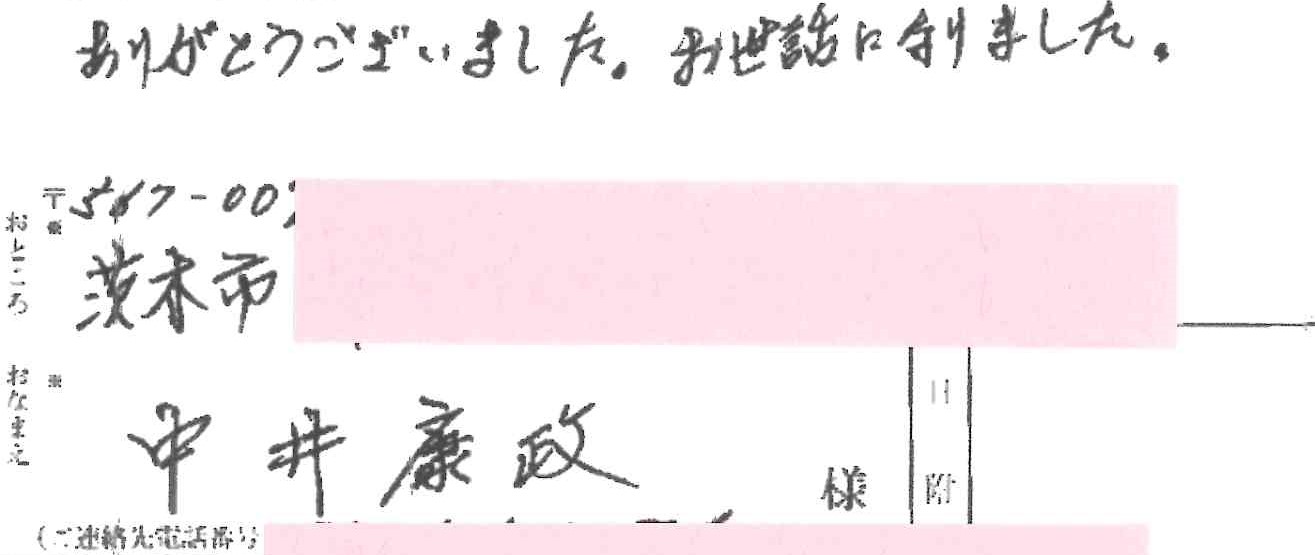 ありがとうございました。お世話になりました。
〒567-00
※
おところ
茨木市
おなまえ
※
中井康政
様
日附
(ご連絡先電話番号